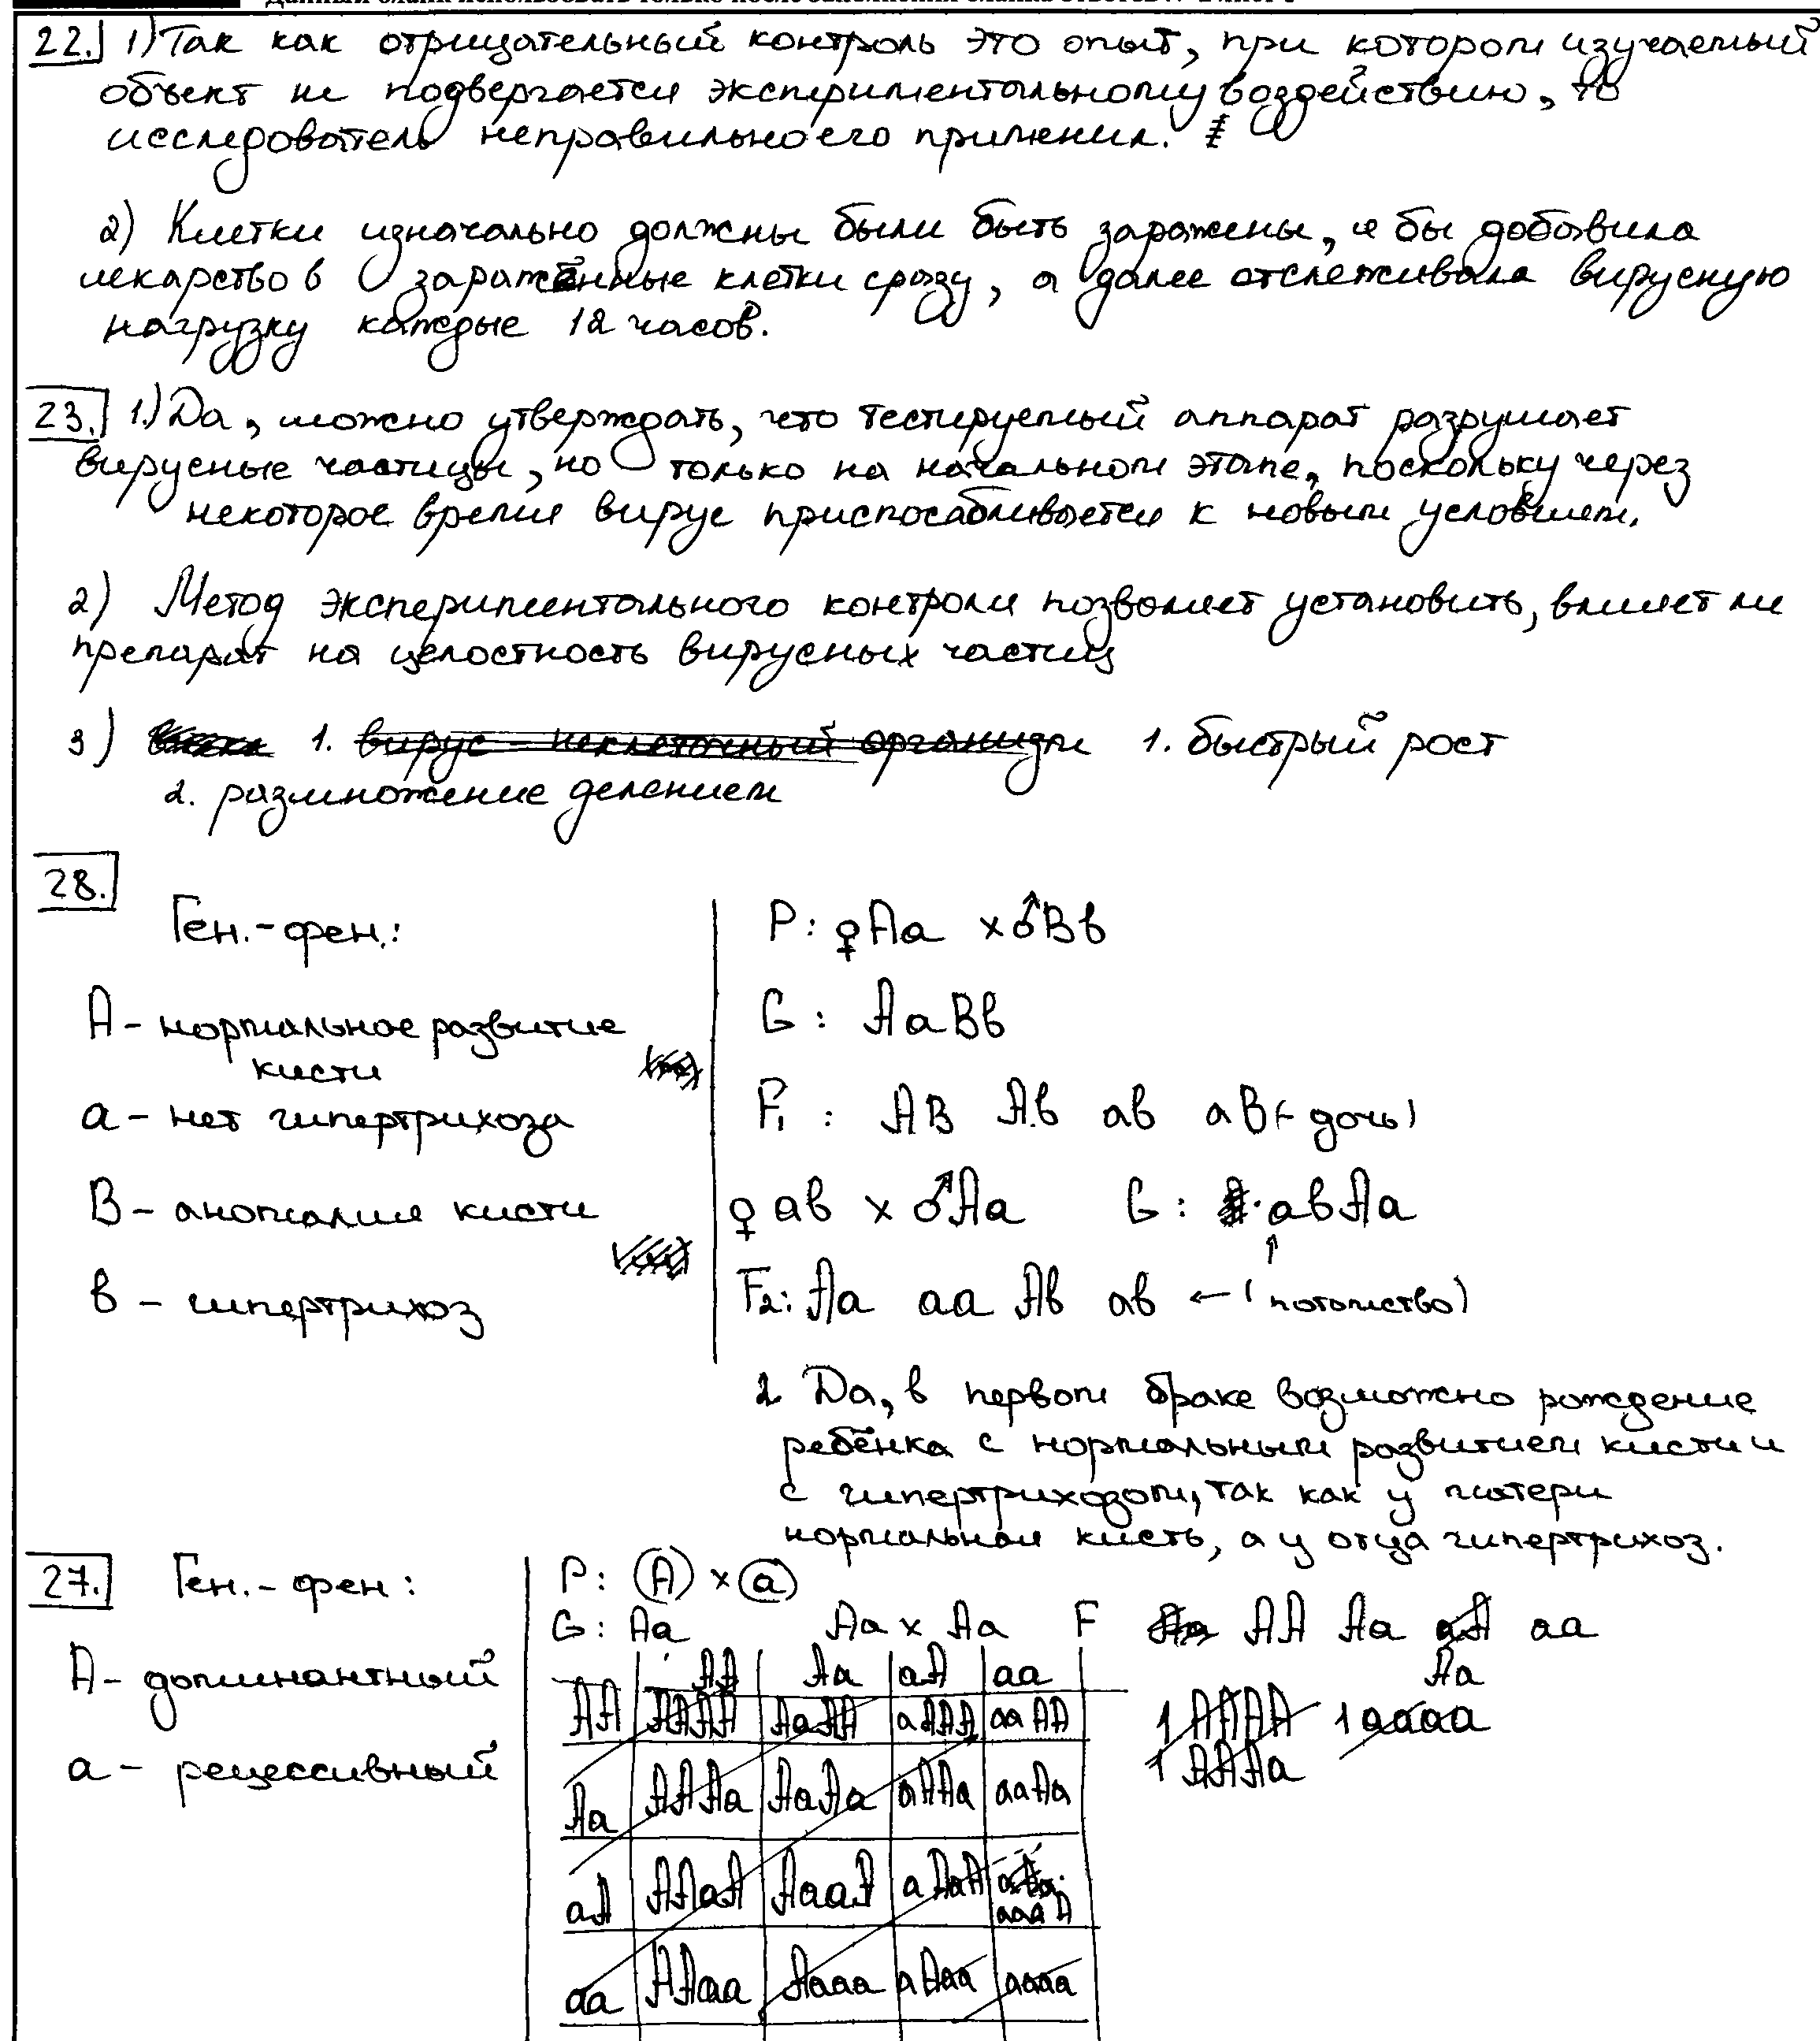 22. 1) Так как отрицательный контроль это опыт, при котором изучаемый
объект не подвергается экспериментальному воздействию, то
исследователь неправильно его применил.
2) Клетки изначально должны были быть заражены, я бы добавила
лекарство в заражённые клетки сразу, а далее отслеживала вирусную
нагрузку каждые 12 часов.
23. 1.) Да, можно утверждать, что тестируемый аппарат разрушает
вирусные частицы, но только на начальном этапе, поскольку через
некоторое время вирус приспосабливается к новым условиям.
2) Метод экспериментального контроля позволяет установить, влияет ли
препарат на целостность вирусных частиц
3) 1. вирус - неклеточный организм 1. быстрый рост
2. размножение делением
28.
Ген.-фен.:
А - нормальное развитие
кисти
а - нет гипертрихоза
В - аномалия кисти
в - гипертрихоз
P: ♀Аа х ♂Вв
G: АаВв
F1: АВ Ав ав аВ (- дочь)
♀ ав х ♂Аа G: авАа
F2: Аа аа Ав ав ← (потомство)
2 Да, в первом браке возможно рождение
ребёнка с нормальным развитием кисти и
с гипертрихозом, так как у матери
нормальная кисть, а у отца гипертрихоз.
27. Ген.-фен:
А - доминантный
а - рецессивный
P: (А) х (а)
G: Аа Аа х Аа F Аа АА Аа аА аа
Аа
АА Аа аА аа
АА АААА АаАА аААА ааАА
Аа АААа АаАа аААа ааАа
аА ААаА АааА аАаА аааА
аа ААаа Аааа аАаа аааа
1 АААА 1 аааа
1 АААа